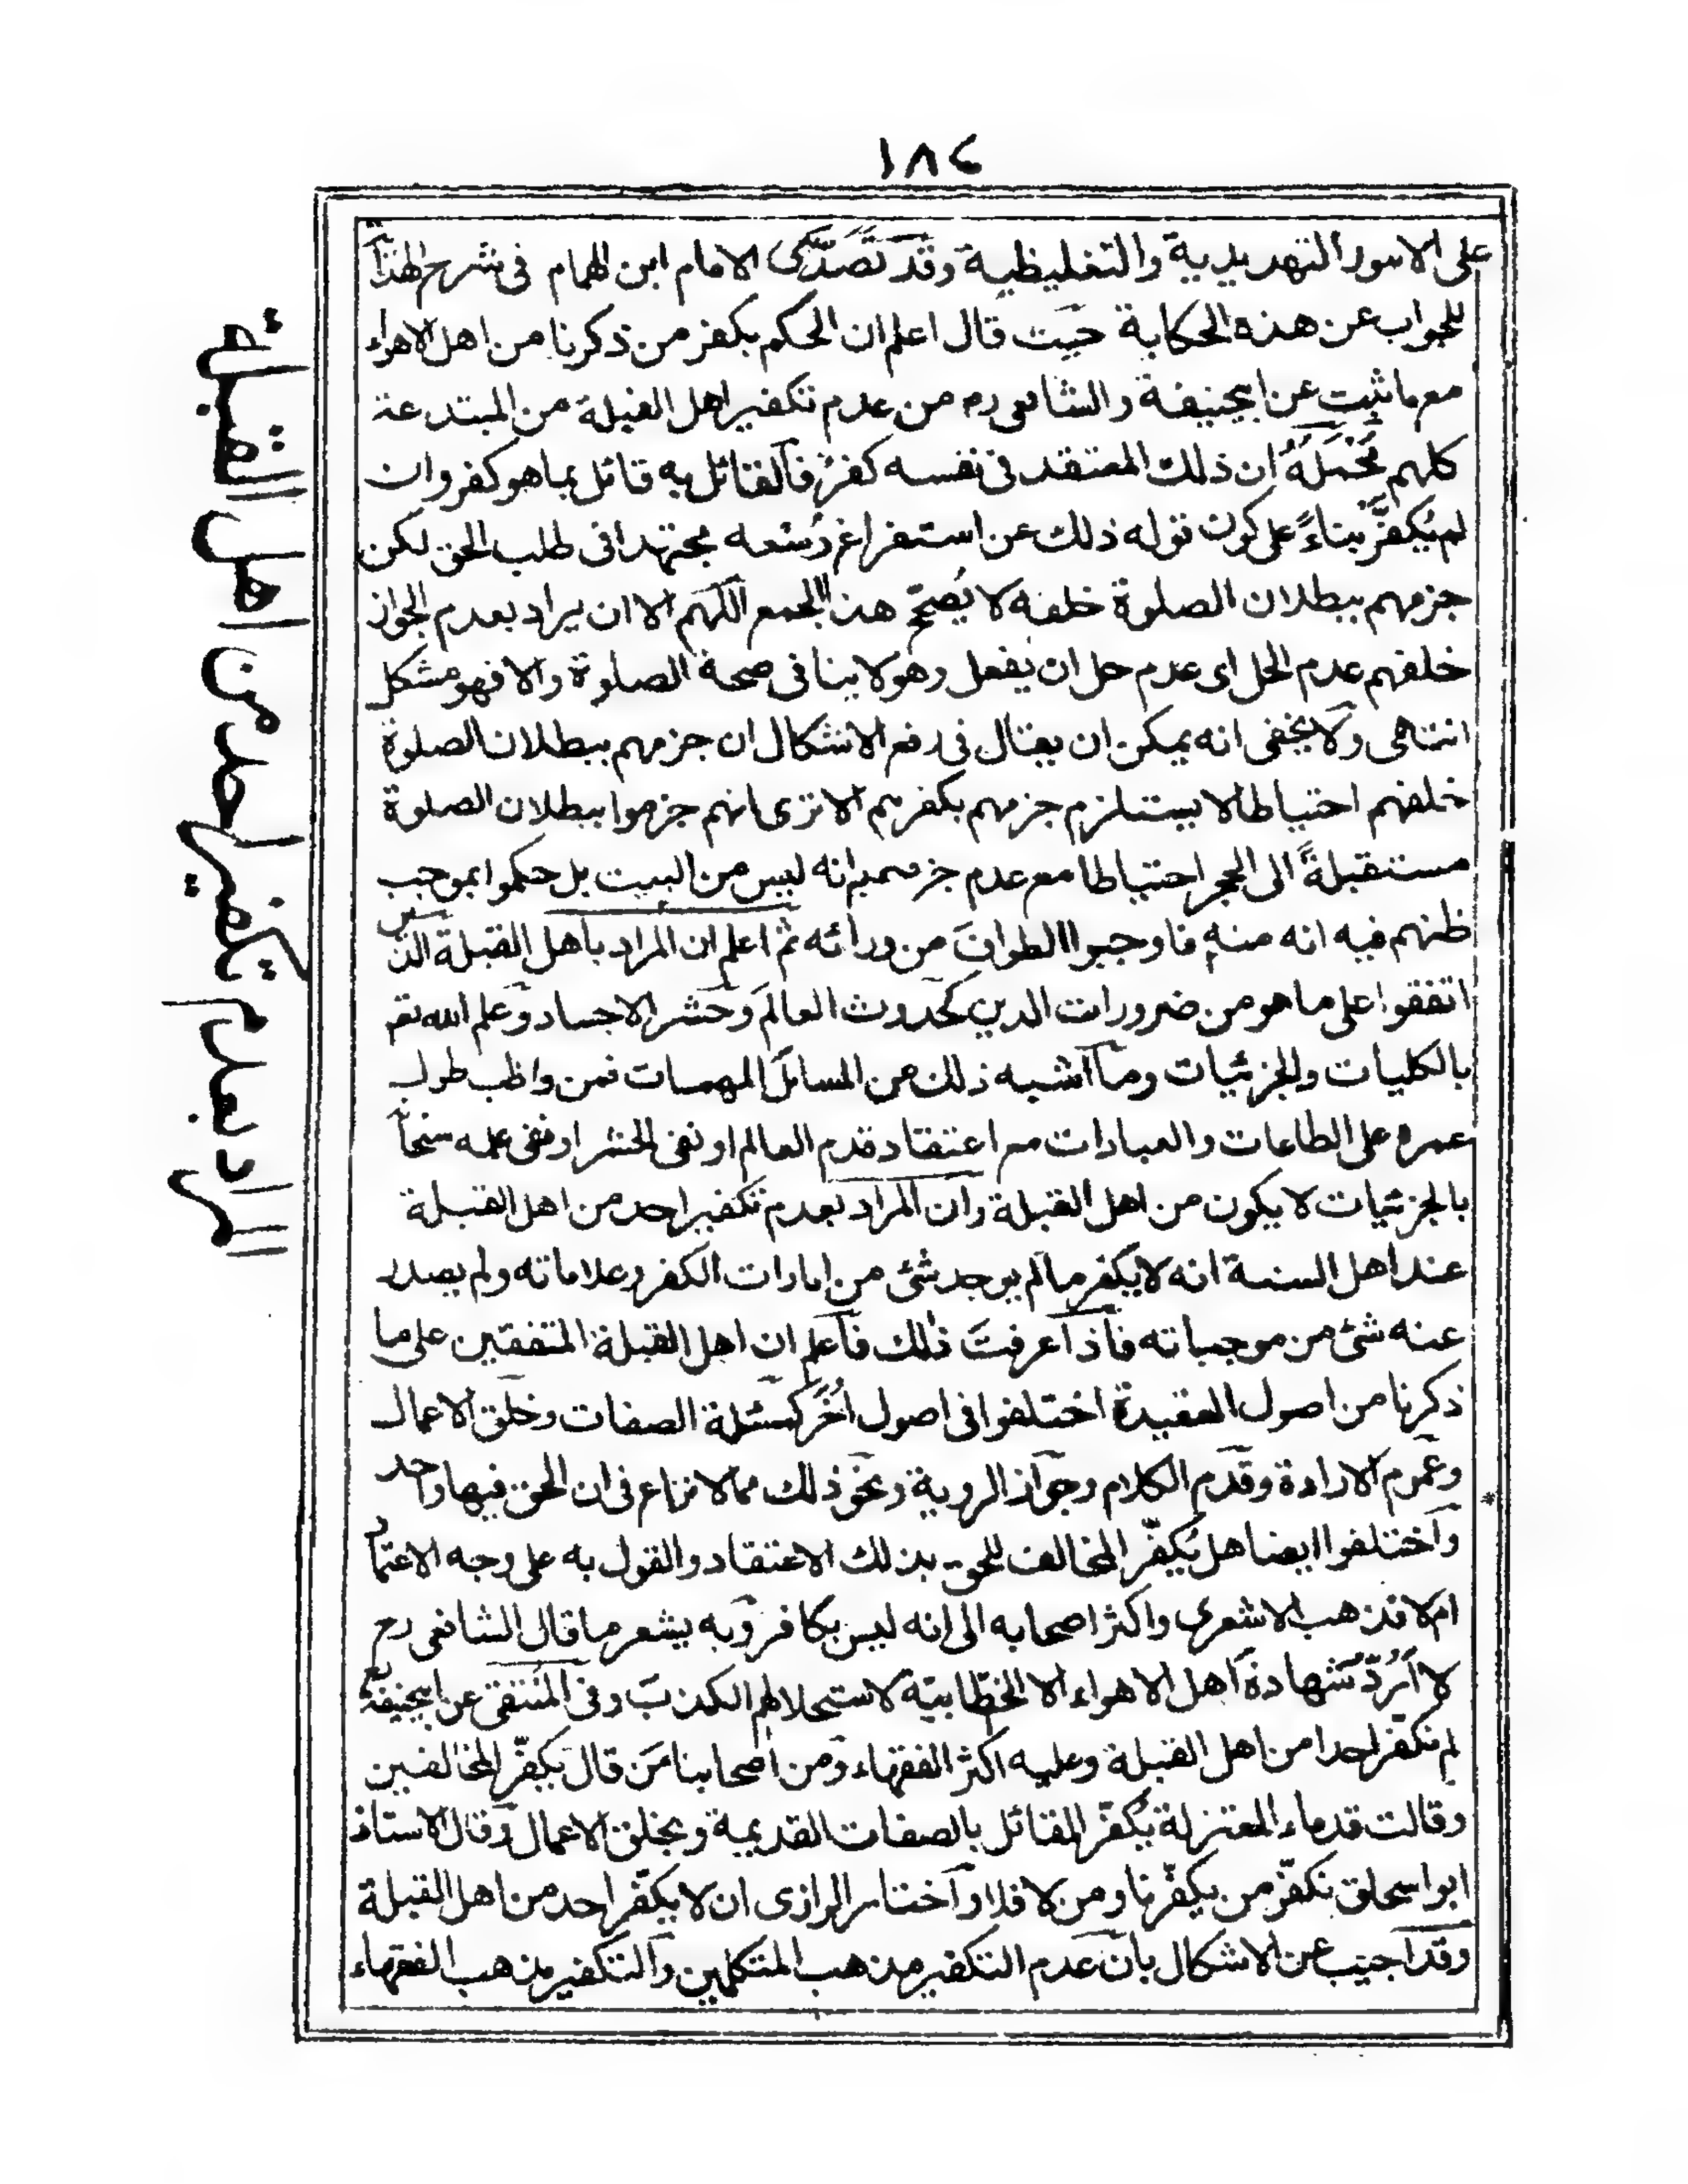 ١٨٤
على الامور التهديدية والتغليظية وقد تصدّى الامام ابن الهمام فى شرح الهداية
للجواب عن هذه الحكاية حيث قال اعلم ان الحكم بكفر من ذكرنا من اهل الاهواء
مع ما ثبت عن ابيحنيفة والشافعى رح من عدم تكفير اهل القبلة من المبتدعة
كلهم محمله ان ذلك المعتقد فى نفسه كفر فالقائل به قائل بما هو كفر وان
لم يُكفّر بناءً على كون قوله ذلك عن استفراغ وُسْعه مجتهدا فى طلب الحق لكن
جزمهم ببطلان الصلوة خلفه لا يُصحّح هذا الجمع اللهم الا ان يراد بعدم الجواز
خلفهم عدم الحل اى عدم حل ان يفعل وهو لا ينافى صحة الصلوة والا فهو مشكل
انتهى ولا يخفى انه يمكن ان يقال فى رفع الاشكال ان جزمهم ببطلان الصلوة
خلفهم احتياطا لا يستلزم جزمهم بكفرهم الا ترى انهم جزموا ببطلان الصلوة
مستقبلةً الى الحجر احتياطا مع عدم جزمهم انه ليس من البيت بل حكموا بموجب
ظنهم فيه انه منه فاوجبوا الطواف من ورائه ثم اعلم ان المراد باهل القبلة الذين
اتفقوا على ما هو من ضرورات الدين كحدوث العالم وحشر الاجساد وعلم الله تعـ
بالكليات والجزئيات وما اشبه ذلك من المسائل المهمات فمن واظب طول
عمره على الطاعات والعبادات مع اعتقاد قدم العالم او نفى الحشر او نفى علمه سبحانه
بالجزئيات لا يكون من اهل القبلة وان المراد بعدم تكفير احد من اهل القبلة
عند اهل السنة انه لا يكفر ما لم يوجد شئ من امارات الكفر وعلاماته ولم يصدر
عنه شئ من موجباته فاذا عرفت ذلك فاعلم ان اهل القبلة المتفقين على ما
ذكرنا من اصول العقيدة اختلفوا فى اصول أُخَر كمسئلة الصفات وخلق الاعمال
وعموم الارادة وقدم الكلام وجواز الروية ونحو ذلك مما لا نزاع فى ان الحق فيها واحد
واختلفوا ايضا هل يُكفّر المخالف للحق بذلك الاعتقاد والقول به على وجه الاعتماد
ام لا فذهب الاشعرى واكثر اصحابه الى انه ليس بكافر وبه يشعر ما قال الشافعى رح
لا اَرُدّ شهادة اهل الاهواء الا الخطّابيّة لاستحلالهم الكذب وفى المنتقى عن ابيحنيفة
لم نكفر احدا من اهل القبلة وعليه اكثر الفقهاء ومن اصحابنا من قال بكفر المخالفين
وقالت قدماء المعتزلة يُكفّر القائل بالصفات القديمة وبخلق الاعمال وقال الاستاذ
ابو اسحاق نكفّر من يكفّرنا ومن لا فلا واختار الرازى ان لا يكفّر احد من اهل القبلة
وقد اجيب عن الاشكال بان عدم التكفير مذهب المتكلمين والتكفير مذهب الفقهاء
المراد بعدم تكفير احد من اهل القبلة